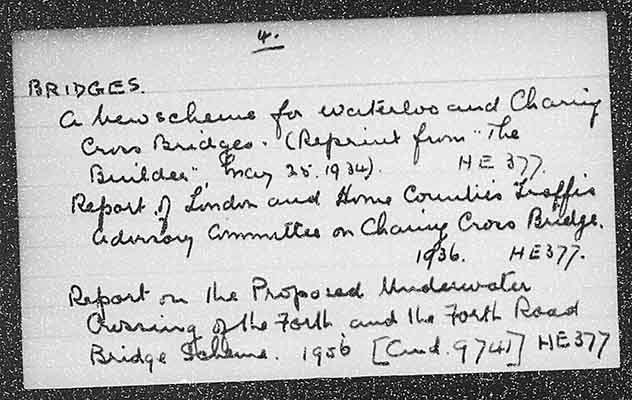 4.
BRIDGES.
A new scheme for Waterloo and Charing
Cross Bridges. (Reprint from "The
Builder" May 25. 1934). HE 377.
Report of London and Home Counties Traffic
Advisory Committee on Charing Cross Bridge.
1936. HE377.
Report on the Proposed Underwater
Crossing of the Forth and the Forth Road
Bridge Scheme. 1956 [Cmd. 9741] HE377